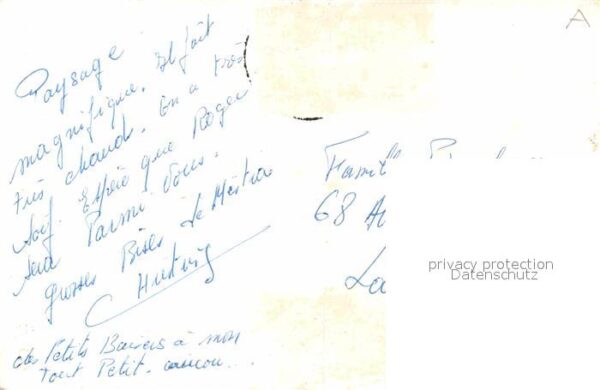 Paysage
magnifique. Il fait
très chaud. On a très
soif. Espère que Roger
sera Parmi Vous.
Grosses Bises
des Petits Baisers à mon
tout Petit
A
Famill
68 A
La
privacy protection
Datenschutz